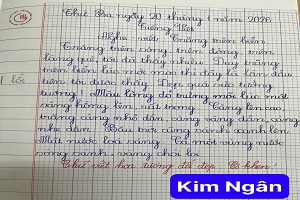 Thứ Ba ngày 20 tháng 1 năm 2026
Tiếng Việt
Nghe viết: Trăng trên biển
Trăng trên sông, trên đồng, trên
làng quê, tôi đã thấy nhiều. Duy trăng
trên biển lúc mới mọc thì đây là lần đầu
tiên tôi được thấy. Đẹp quá sức tưởng
1 lỗi
tượng! Màu lòng đỏ trứng mỗi lúc một
sáng hồng lên, rất trong. Càng lên cao,
trăng càng nhỏ dần, càng vàng dần, càng
nhẹ dần. Bầu trời cũng xanh
Mặt nước loá sáng. Cả một vùng nước
sóng sánh, vàng chói lọi.
Chữ viết hoa tương đối đẹp. Cô khen!
Kim Ngân